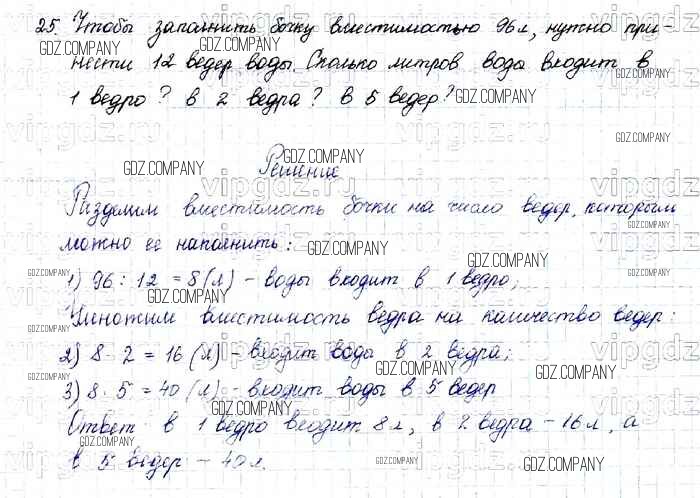 25. Чтобы заполнить бочку вместимостью 96 л, нужно при-
нести 12 ведер воды. Сколько литров воды входит в
1 ведро? в 2 ведра? в 5 ведер?
Решение
Разделим вместимость бочки на число ведер, которым
можно ее наполнить:
1) 96 : 12 = 8 (л) - воды входит в 1 ведро;
Умножим вместимость ведра на количество ведер:
2) 8 · 2 = 16 (л) - входит воды в 2 ведра;
3) 8 · 5 = 40 (л) - входит воды в 5 ведер
Ответ: в 1 ведро входит 8 л, в 2 ведра - 16 л, а
в 5 ведер - 40 л.